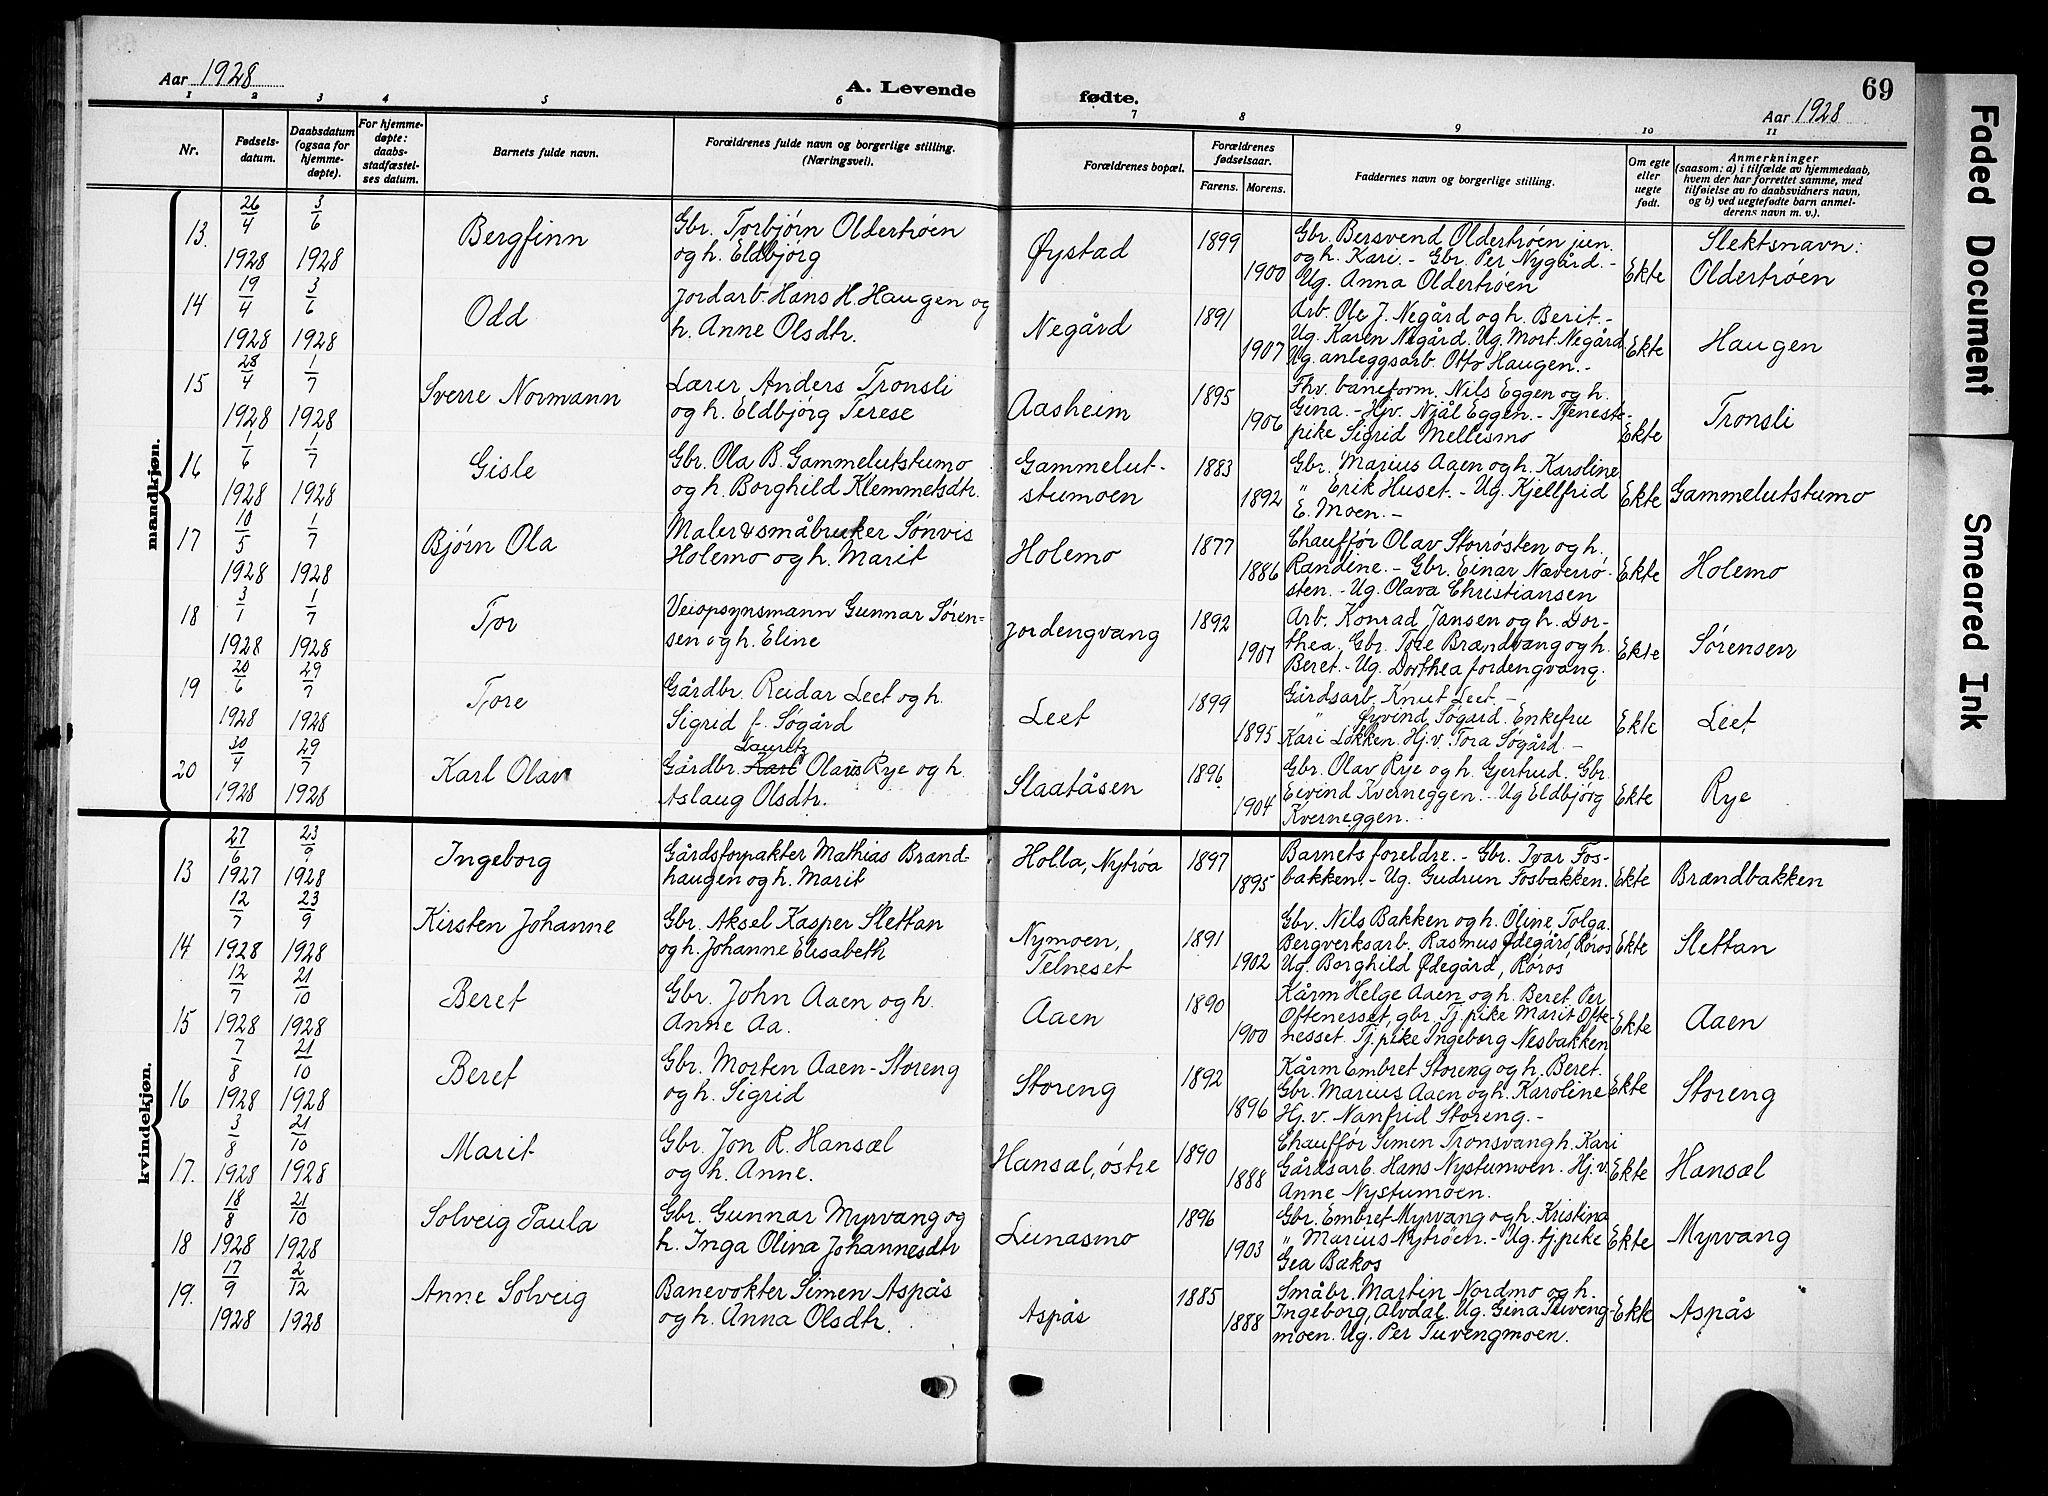 Aar 1928
A. Levende fødte.
69
Aar 1928
1 2 3 4 5 6 7 8 9 10 11
Nr.
Fødsels-
datum.
Daabsdatum
(ogsaa for
hjemme-
døpte).
For hjemme-
døpte:
daabs-
stadfæstel-
ses datum.
Barnets fulde navn.
Forældrenes fulde navn og borgerlige stilling.
(Næringsvei).
Forældrenes bopæl.
Forældrenes
fødselsaar.
Farens. Morens.
Faddernes navn og borgerlige stilling.
Om egte
eller
uegte
født.
Anmerkninger
(saasom: a) i tilfælde av hjemmedaab,
hvem der har forrettet samme, med
tilføielse av to daabsvidners navn,
og b) ved uegtefødte barn anmel-
derens navn m. v.).
mandkjøn.
13. 26/4 1928 3/6 1928
Bergfinn
Gbr. Torbjørn Oldertrøen
og h. Eldbjørg
Øystad
1899
1900
Gbr. Bersvend Oldertrøen jun.
og h. Kari. - Gbr. Per Nygård. -
Ug. Anna Oldertrøen
Ekte
Slektsnavn:
Oldertrøen
14 19/4 1928 3/6 1928
Odd
Jordarb. Hans H. Haugen og
h. Anne Olsdtr.
Negård
1891
1907
Arb. Ole J. Negård og h. Berit. -
Ug. Karen Negård. Ug. Mort. Negård
Ug. anleggsarb. Otto Haugen. -
Ekte
Haugen
15 28/4 1928 1/7 1928
Sverre Normann
Lærer Anders Tronsli
og h. Eldbjørg Terese
Aasheim
1895
1906
Fhv. baneform. Nils Eggen og h.
Gina. - Hjv. Njål Eggen. - Tjeneste-
pike Sigrid Mellesmo
Ekte
Tronsli
16 1/6 1928 1/7 1928
Gisle
Gbr. Ola B. Gammelutstumo
og h. Borghild Klemmetsdtr.
Gammelut-
stumoen
1883
1892
Gbr. Marius Aaen og h. Karoline
" Erik Huset. - Ug. Kjellfrid
E. Moen. -
Ekte
Gammelutstumo
17 10/5 1928 1/7 1928
Bjørn Ola
Maler & småbruker Sønvis
Holemo og h. Marit
Holemo
1877
1886
Chauffør Olav Storrøsten og h.
Randine. - Gbr. Einar Næverrø-
sten. - Ug. Olava Christiansen
Ekte
Holemo
18 3/1 1928 1/7 1928
Tor
Veiopsynsmann Gunnar Søren-
sen og h. Eline
Jordengvang
1892
1901
Arb. Konrad Jansen og h. Dor-
thea. Gbr. Tore Brændvang og h.
Beret. - Ug. Dorthea Jordengvang.
Ekte
Sørensen
19 20/6 1928 29/7 1928
Tore
Gårdbr. Reidar Leet og h.
Sigrid f. Søgård
Leet
1899
1895
Gårdsarb. Knut Leet. -
" Øyvind Søgård. Enkefru
Kari Løkken. Hj.v. Tora Søgård. -
Ekte
Leet
20 30/4 1928 29/7 1928
Karl Olav
Lauritz
Gårdbr. Karl Olaus Rye og h.
Aslaug Olsdtr.
Slaatåsen
1896
1904
Gbr. Olav Rye og h. Gjertrud. Gbr.
Eivind Kverneggen. - Ug Eldbjørg
Kverneggen.
Ekte
Rye
kvindekjøn.
13 27/6 1927 23/9 1928
Ingeborg
Gårdsforpakter Mathias Brand-
haugen og h. Marit
Holla, Nytrøa
1897
1895
Barnets foreldre. - Gbr. Ivar Fos-
bakken. - Ug. Gudrun Fosbakken.
Ekte
Brændbakken
14 12/7 1928 23/9 1928
Kirsten Johanne
Gbr. Aksel Kasper Slettan
og h. Johanne Elisabeth
Nymoen,
Telneset
1891
1902
Gbr. Nils Bakken og h. Oline, Tolga.
Bergverksarb. Rasmus Ødegård, Røros
Ug. Borghild Ødegård, Røros
Ekte
Slettan
15 12/7 1928 21/10 1928
Beret
Gbr. John Aaen og h.
Anne Aa.
Aaen
1890
1900
Kårm Helge Aaen og h. Beret. Per
Oftenesset, gbr. Tj. pike Marit Ofte-
nesset. Tj. pike Ingeborg Nesbakken
Ekte
Aaen
16 7/8 1928 21/10 1928
Beret
Gbr. Morten Aaen-Storeng
og h. Sigrid
Storeng
1892
1896
Kårm Embret Storeng og h. Beret.
Gbr. Marius Aaen og h. Karoline
Hj. v. Nanfrid Storeng. -
Ekte
Storeng
17. 3/8 1928 21/10 1928
Marit
Gbr. Jon R. Hansæl
og h. Anne.
Hansæl, østre
1890
1888
Chauffør Simen Tronsvang h. Kari
Gårdsarb. Hans Nystumoen. Hj. v.
Anne Nystumoen.
Ekte
Hansæl
18 18/8 1928 21/10 1928
Solveig Paula
Gbr. Gunnar Myrvang og
h. Inga Olina Johannesdtr
Lunasmo
1896
1903
Gbr. Embret Myrvang og h. Kristina
" Marius Nytrøen. - Ug. tj. pike
Gea Bakos
Ekte
Myrvang
19. 17/9 1928 2/12 1928
Anne Solveig
Banevokter Simen Aspås
og h. Anna Olsdtr.
Aspås
1885
1888
Småbr. Martin Nordmo og h.
Ingeborg, Alvdal. Ug. Gina Tuveng-
moen. Ug. Per Tuvengmoen.
Ekte
Aspås
Faded Document
Smeared Ink